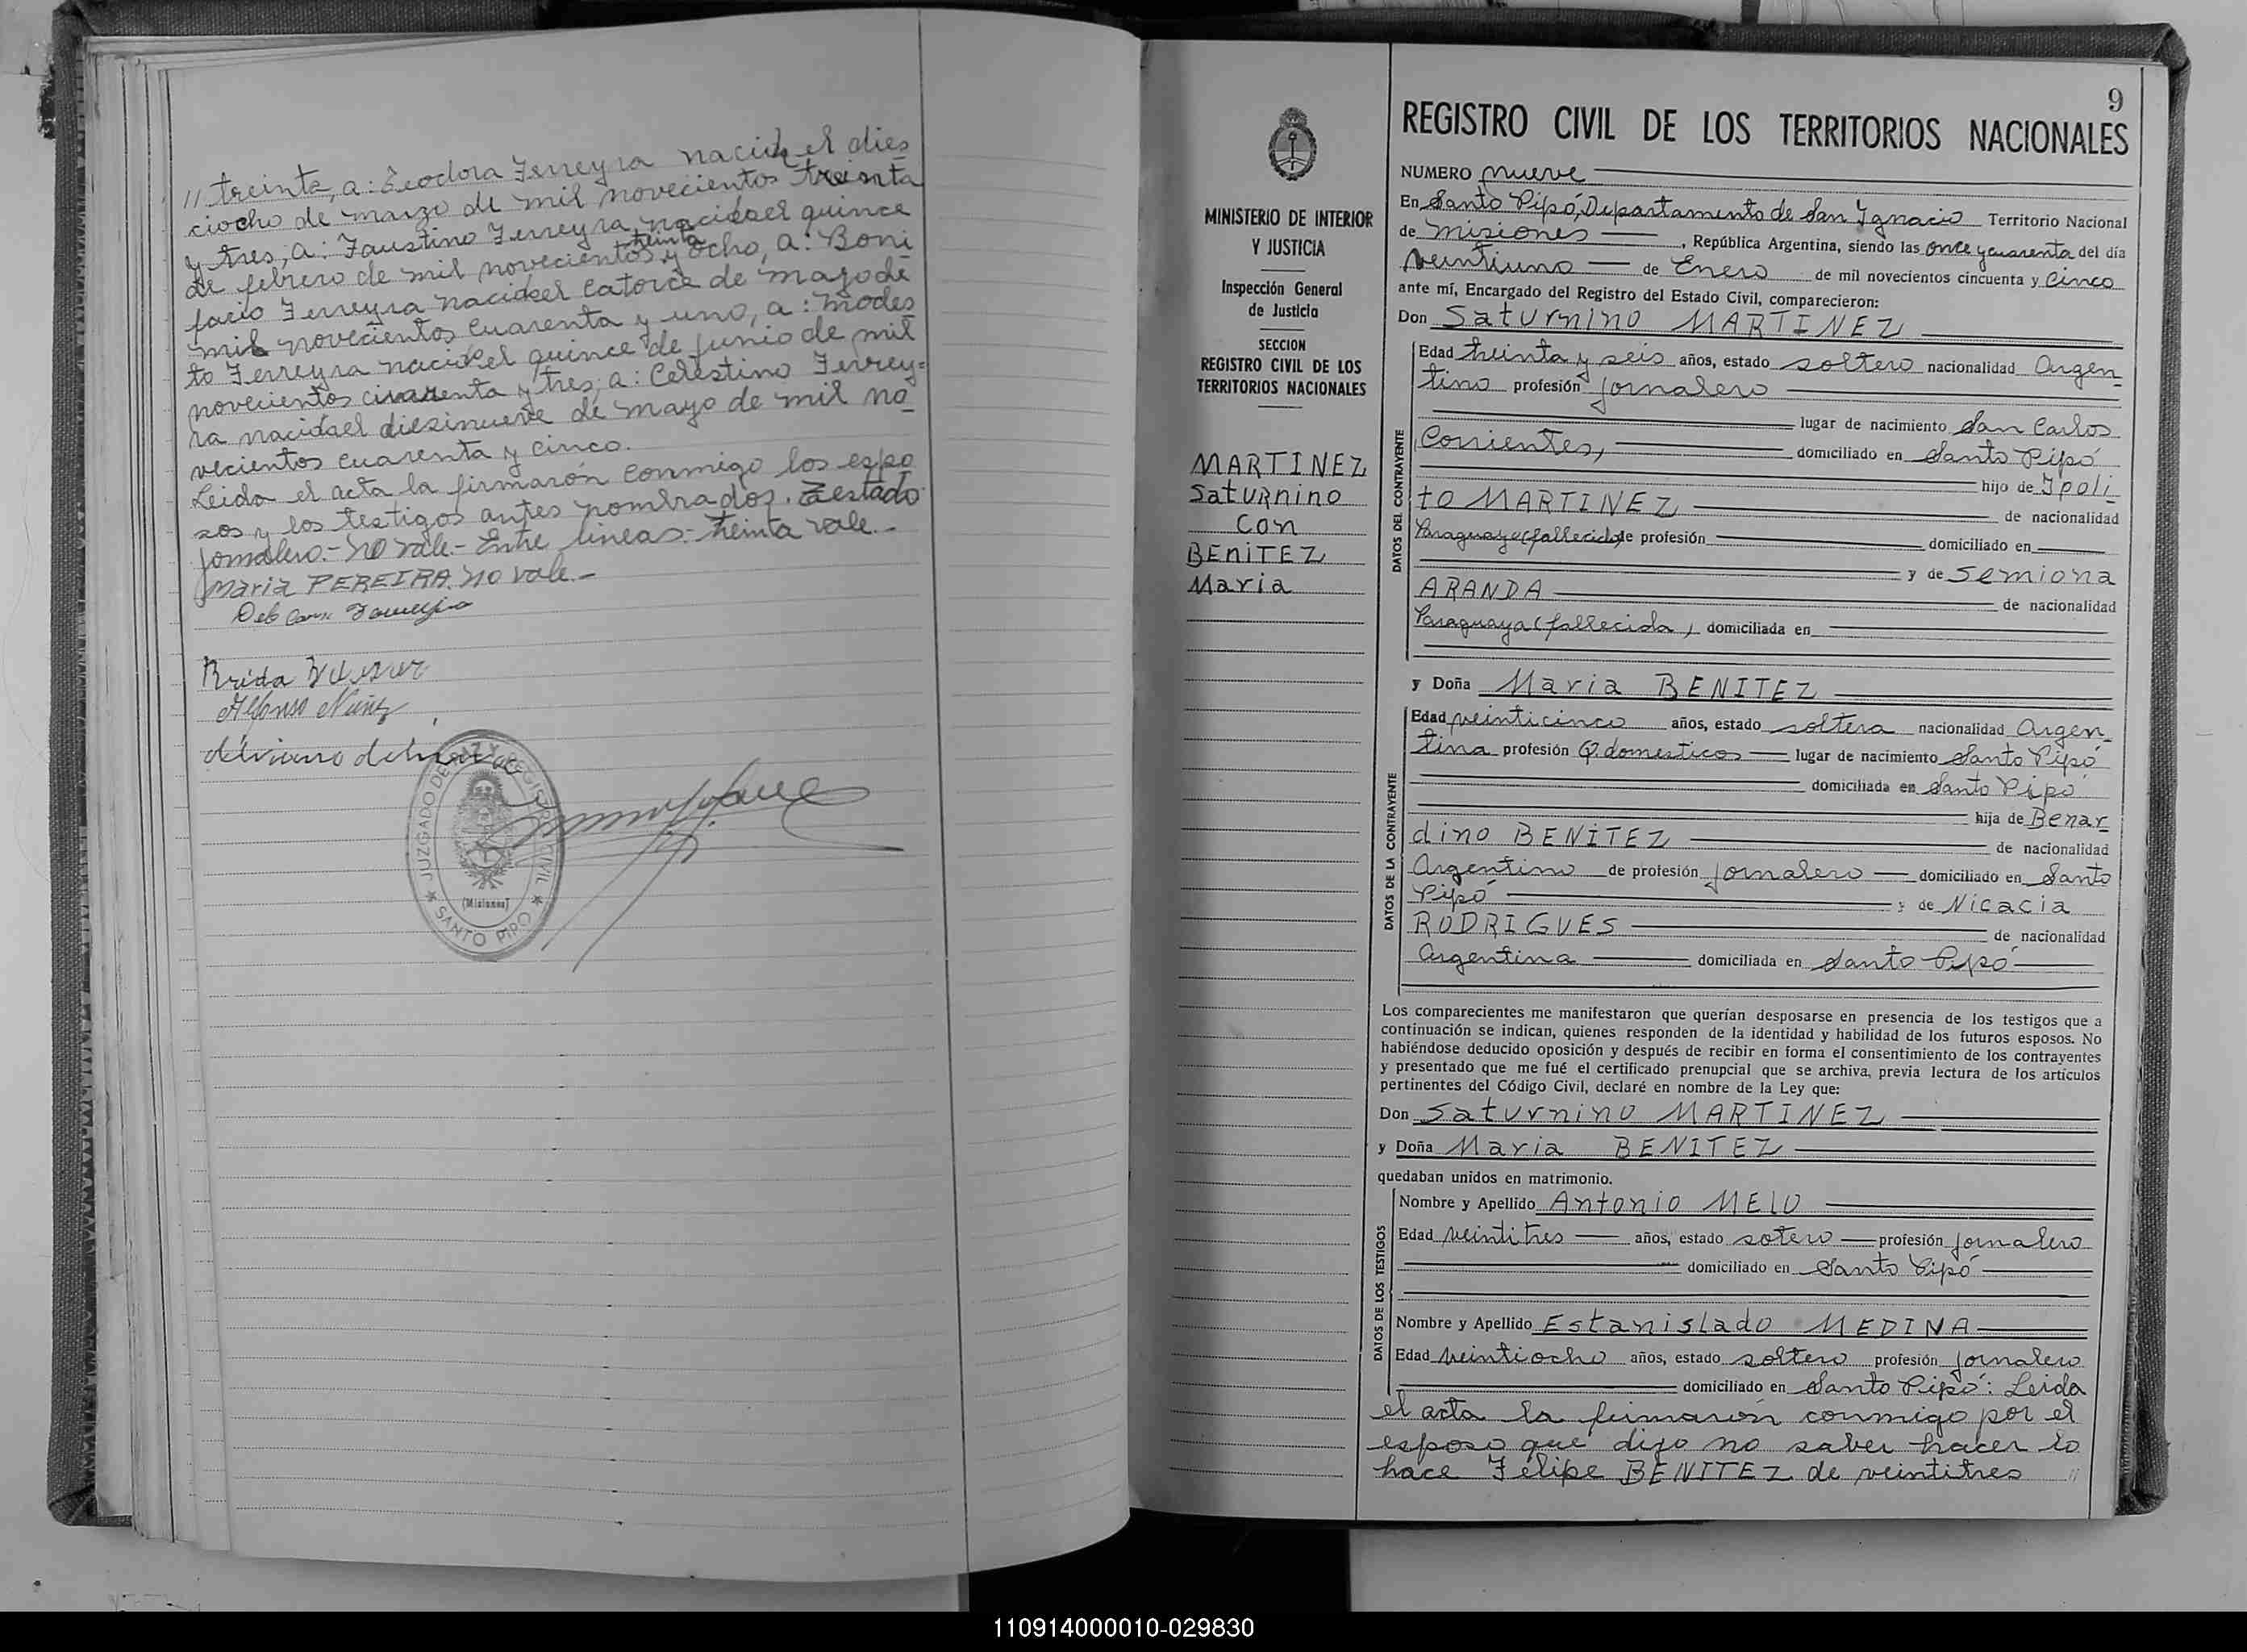 // treinta, a: Teodora Ferreyra nacida el dies
ciocho de marzo de mil novecientos treinta
y tres, a: Faustino Ferreyra nacido el quince
treinta
de febrero de mil novecientos y ocho, a: Boni
facio Ferreyra nacido el catorce de mayo de
mil novecientos cuarenta y uno, a: Modes
to Ferreyra nacido el quince de junio de mil
novecientos cuarenta y tres, a: Celestino Ferrey=
ra nacido el diesinueve de mayo de mil no
vecientos cuarenta y cinco.
Leida el acta la firmarón conmigo los espo
sos y los testigos antes nombrados. Testado
jornalero.- No vale.- Entre lineas: treinta vale.-
Maria PEREIRA. No vale.-
Brida
Alfonso Nuñez
JUZGADO DE PAZ Y REGISTRO CIVIL
(Misiones)
SANTO PIPO
MINISTERIO DE INTERIOR
Y JUSTICIA
Inspección General
de Justicia
SECCION
REGISTRO CIVIL DE LOS
TERRITORIOS NACIONALES
MARTINEZ
Saturnino
con
BENITEZ
Maria
9
REGISTRO CIVIL DE LOS TERRITORIOS NACIONALES
NUMERO nueve
En Santo Pipó, Departamento de San Ignacio Territorio Nacional
de Misiones, República Argentina, siendo las once y cuarenta del día
veintiuno de Enero de mil novecientos cincuenta y cinco
ante mí, Encargado del Registro del Estado Civil, comparecieron:
Don Saturnino MARTINEZ
DATOS DEL CONTRAYENTE
Edad treinta y seis años, estado soltero nacionalidad Argen
tino profesión jornalero
lugar de nacimiento San Carlos
Corrientes, domiciliado en Santo Pipó
hijo de Ipoli
to MARTINEZ de nacionalidad
Paraguayo (fallecido) de profesión domiciliado en
y de Semiona
ARANDA de nacionalidad
Paraguaya (fallecida) domiciliada en
y Doña Maria BENITEZ
DATOS DE LA CONTRAYENTE
Edad veinticinco años, estado soltera nacionalidad Argen
tina profesión Q. domesticos lugar de nacimiento Santo Pipó
domiciliada en Santo Pipó
hija de Benar
dino BENITEZ de nacionalidad
Argentino de profesión jornalero domiciliado en Santo
Pipó y de Nicacia
RODRIGUES de nacionalidad
Argentina domiciliada en Santo Pipó
Los comparecientes me manifestaron que querían desposarse en presencia de los testigos que a
continuación se indican, quienes responden de la identidad y habilidad de los futuros esposos. No
habiéndose deducido oposición y después de recibir en forma el consentimiento de los contrayentes
y presentado que me fué el certificado prenupcial que se archiva, previa lectura de los artículos
pertinentes del Código Civil, declaré en nombre de la Ley que:
Don Saturnino MARTINEZ
y Doña Maria BENITEZ
quedaban unidos en matrimonio.
DATOS DE LOS TESTIGOS
Nombre y Apellido Antonio MELO
Edad veintitres años, estado sotero profesión jornalero
domiciliado en Santo Pipó
Nombre y Apellido Estanislado MEDINA
Edad veintiocho años, estado soltero profesión jornalero
domiciliado en Santo Pipó: Leida
el acta la firmarón conmigo por el
esposo que dijo no saber hacer lo
hace Felipe BENITEZ de veintitres //
110914000010-029830